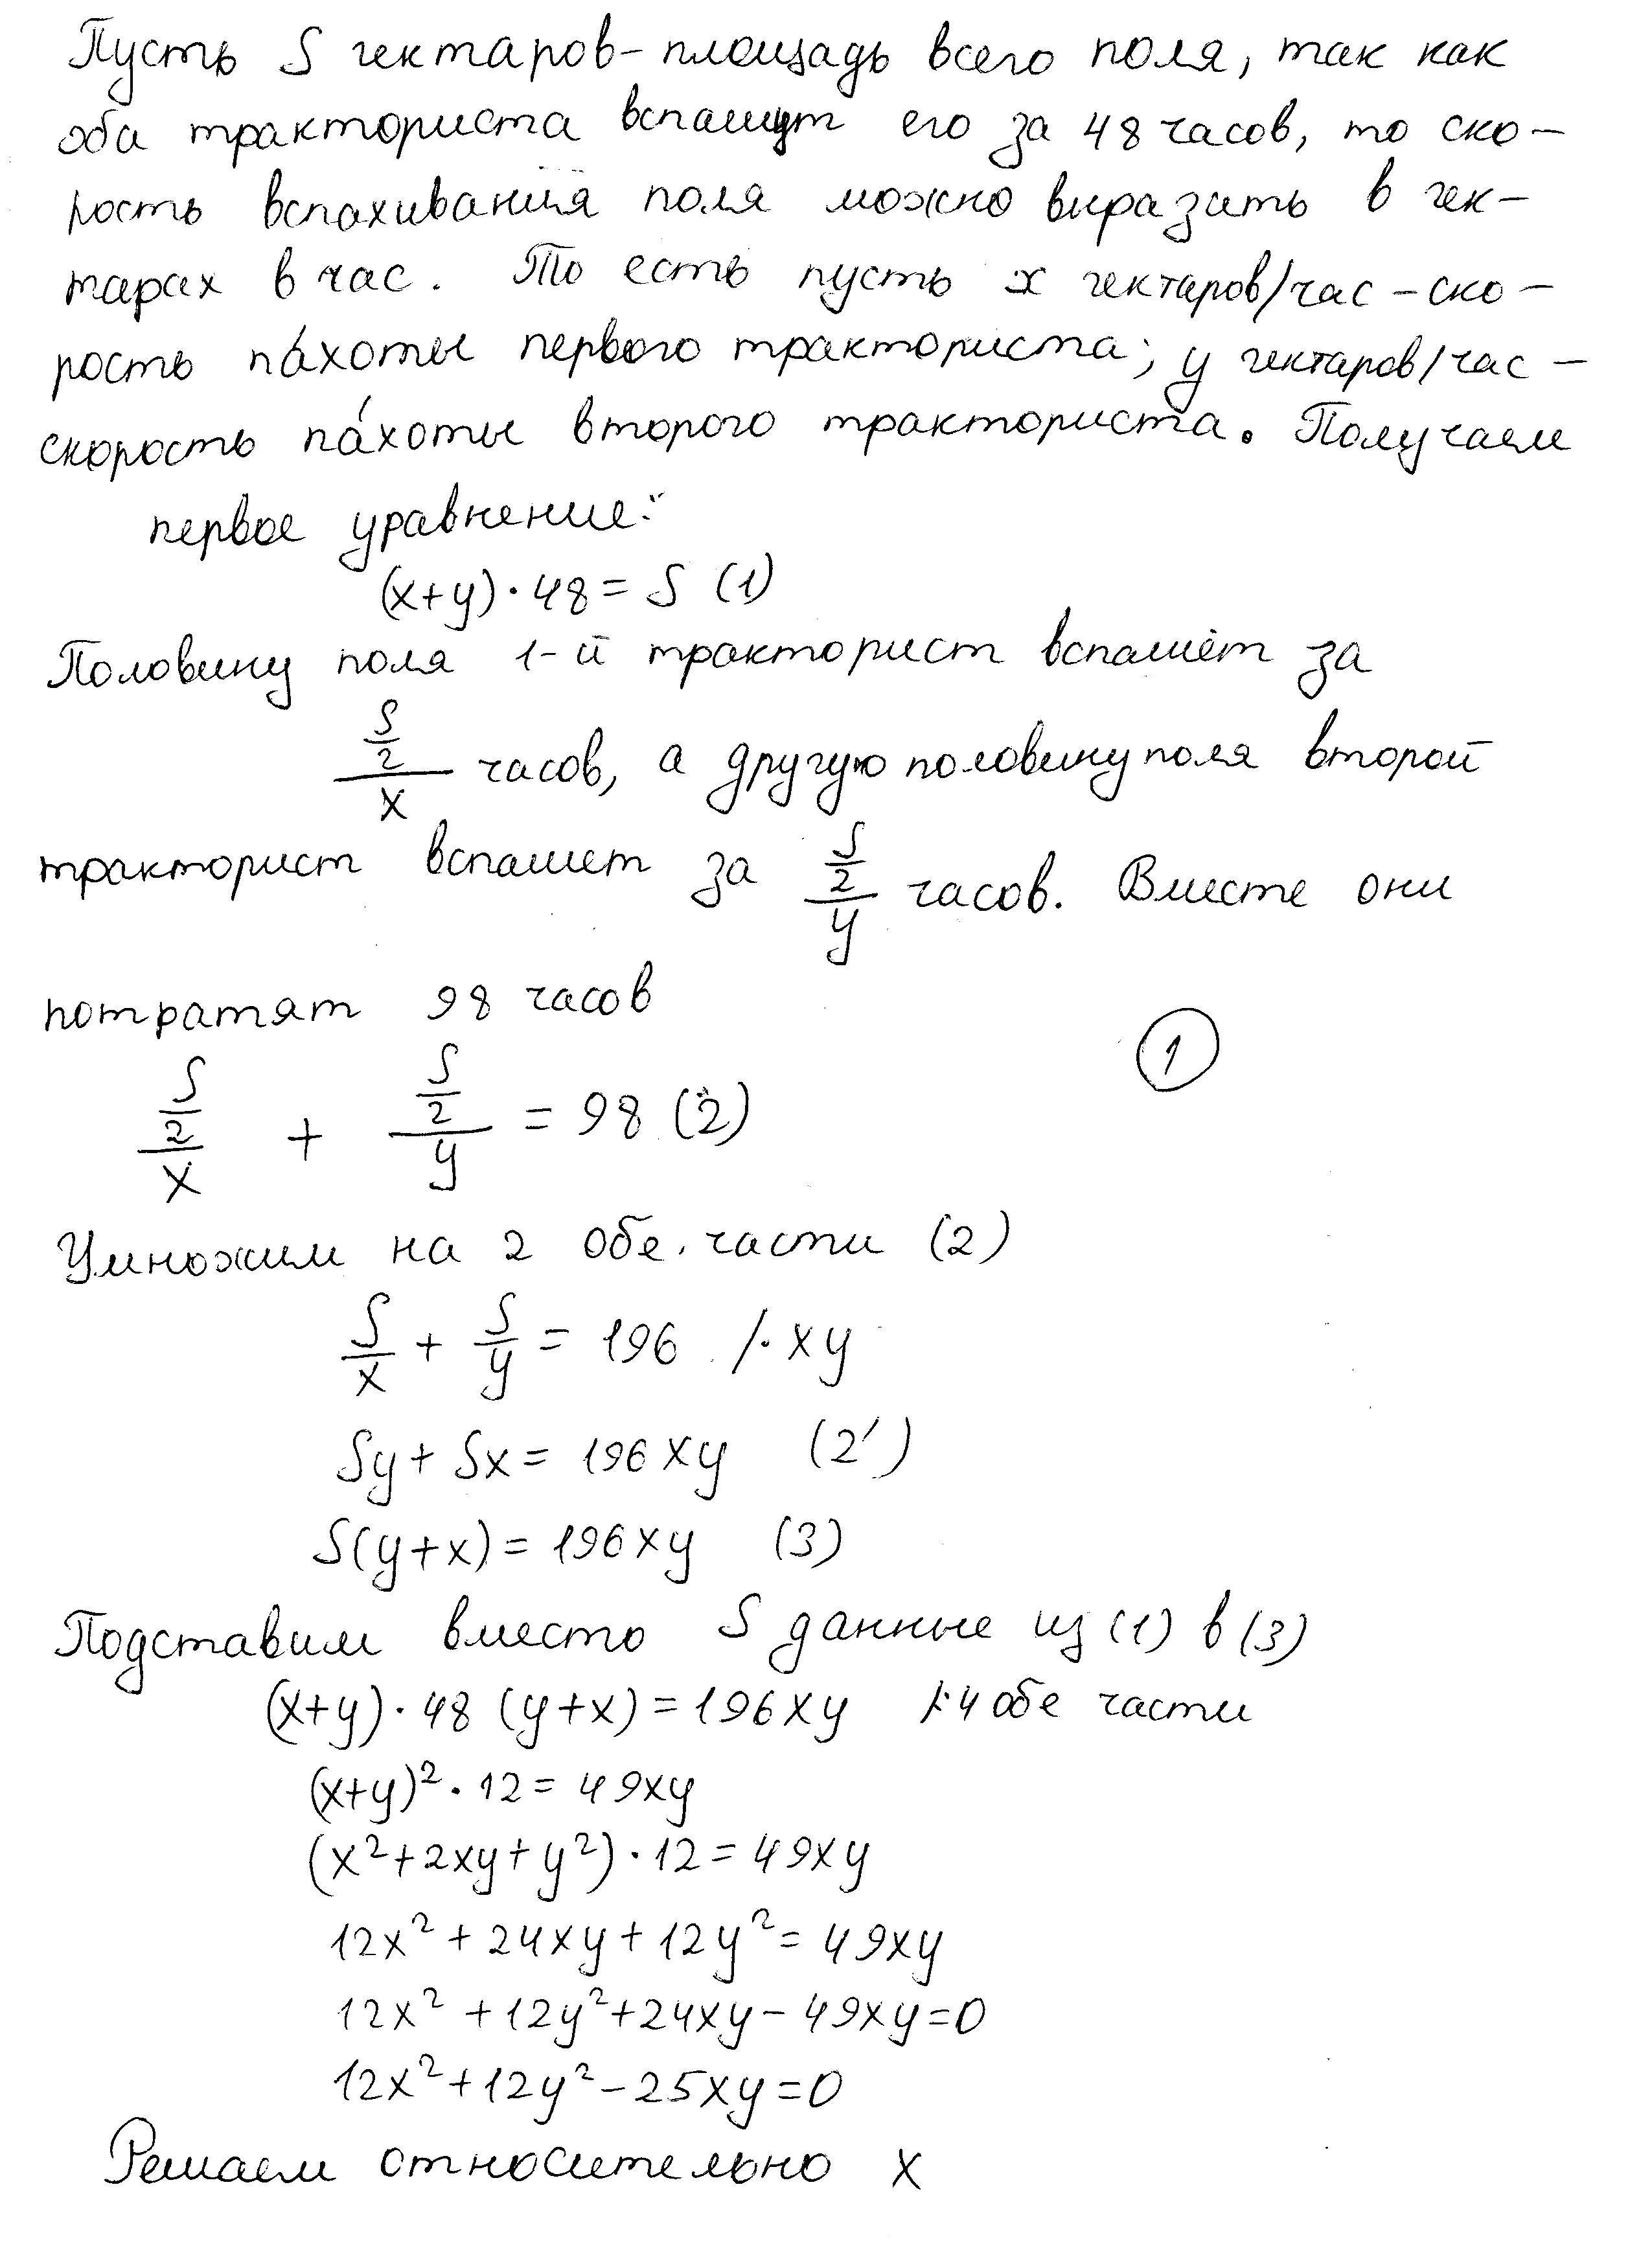 Пусть S гектаров - площадь всего поля, так как
оба тракториста вспашут его за 48 часов, то ско-
рость вспахивания поля можно выразить в гек-
тарах в час. То есть пусть x гектаров/час - ско-
рость пáхоты первого тракториста; y гектаров/час -
скорость пáхоты второго тракториста. Получаем
первое уравнение:
(x+y)·48 = S (1)
Половину поля 1-й тракторист вспашет за
(S/2)/x часов, а другую половину поля второй
тракторист вспашет за (S/2)/y часов. Вместе они
потратят 98 часов
1
(S/2)/x + (S/2)/y = 98 (2)
Умножим на 2 обе части (2)
S/x + S/y = 196 /·xy
Sy + Sx = 196xy (2')
S(y+x) = 196xy (3)
Подставим вместо S данные из (1) в (3)
(x+y)·48(y+x) = 196xy /:4 обе части
(x+y)²·12 = 49xy
(x²+2xy+y²)·12 = 49xy
12x² + 24xy + 12y² = 49xy
12x² + 12y² + 24xy - 49xy = 0
12x² + 12y² - 25xy = 0
Решаем относительно x